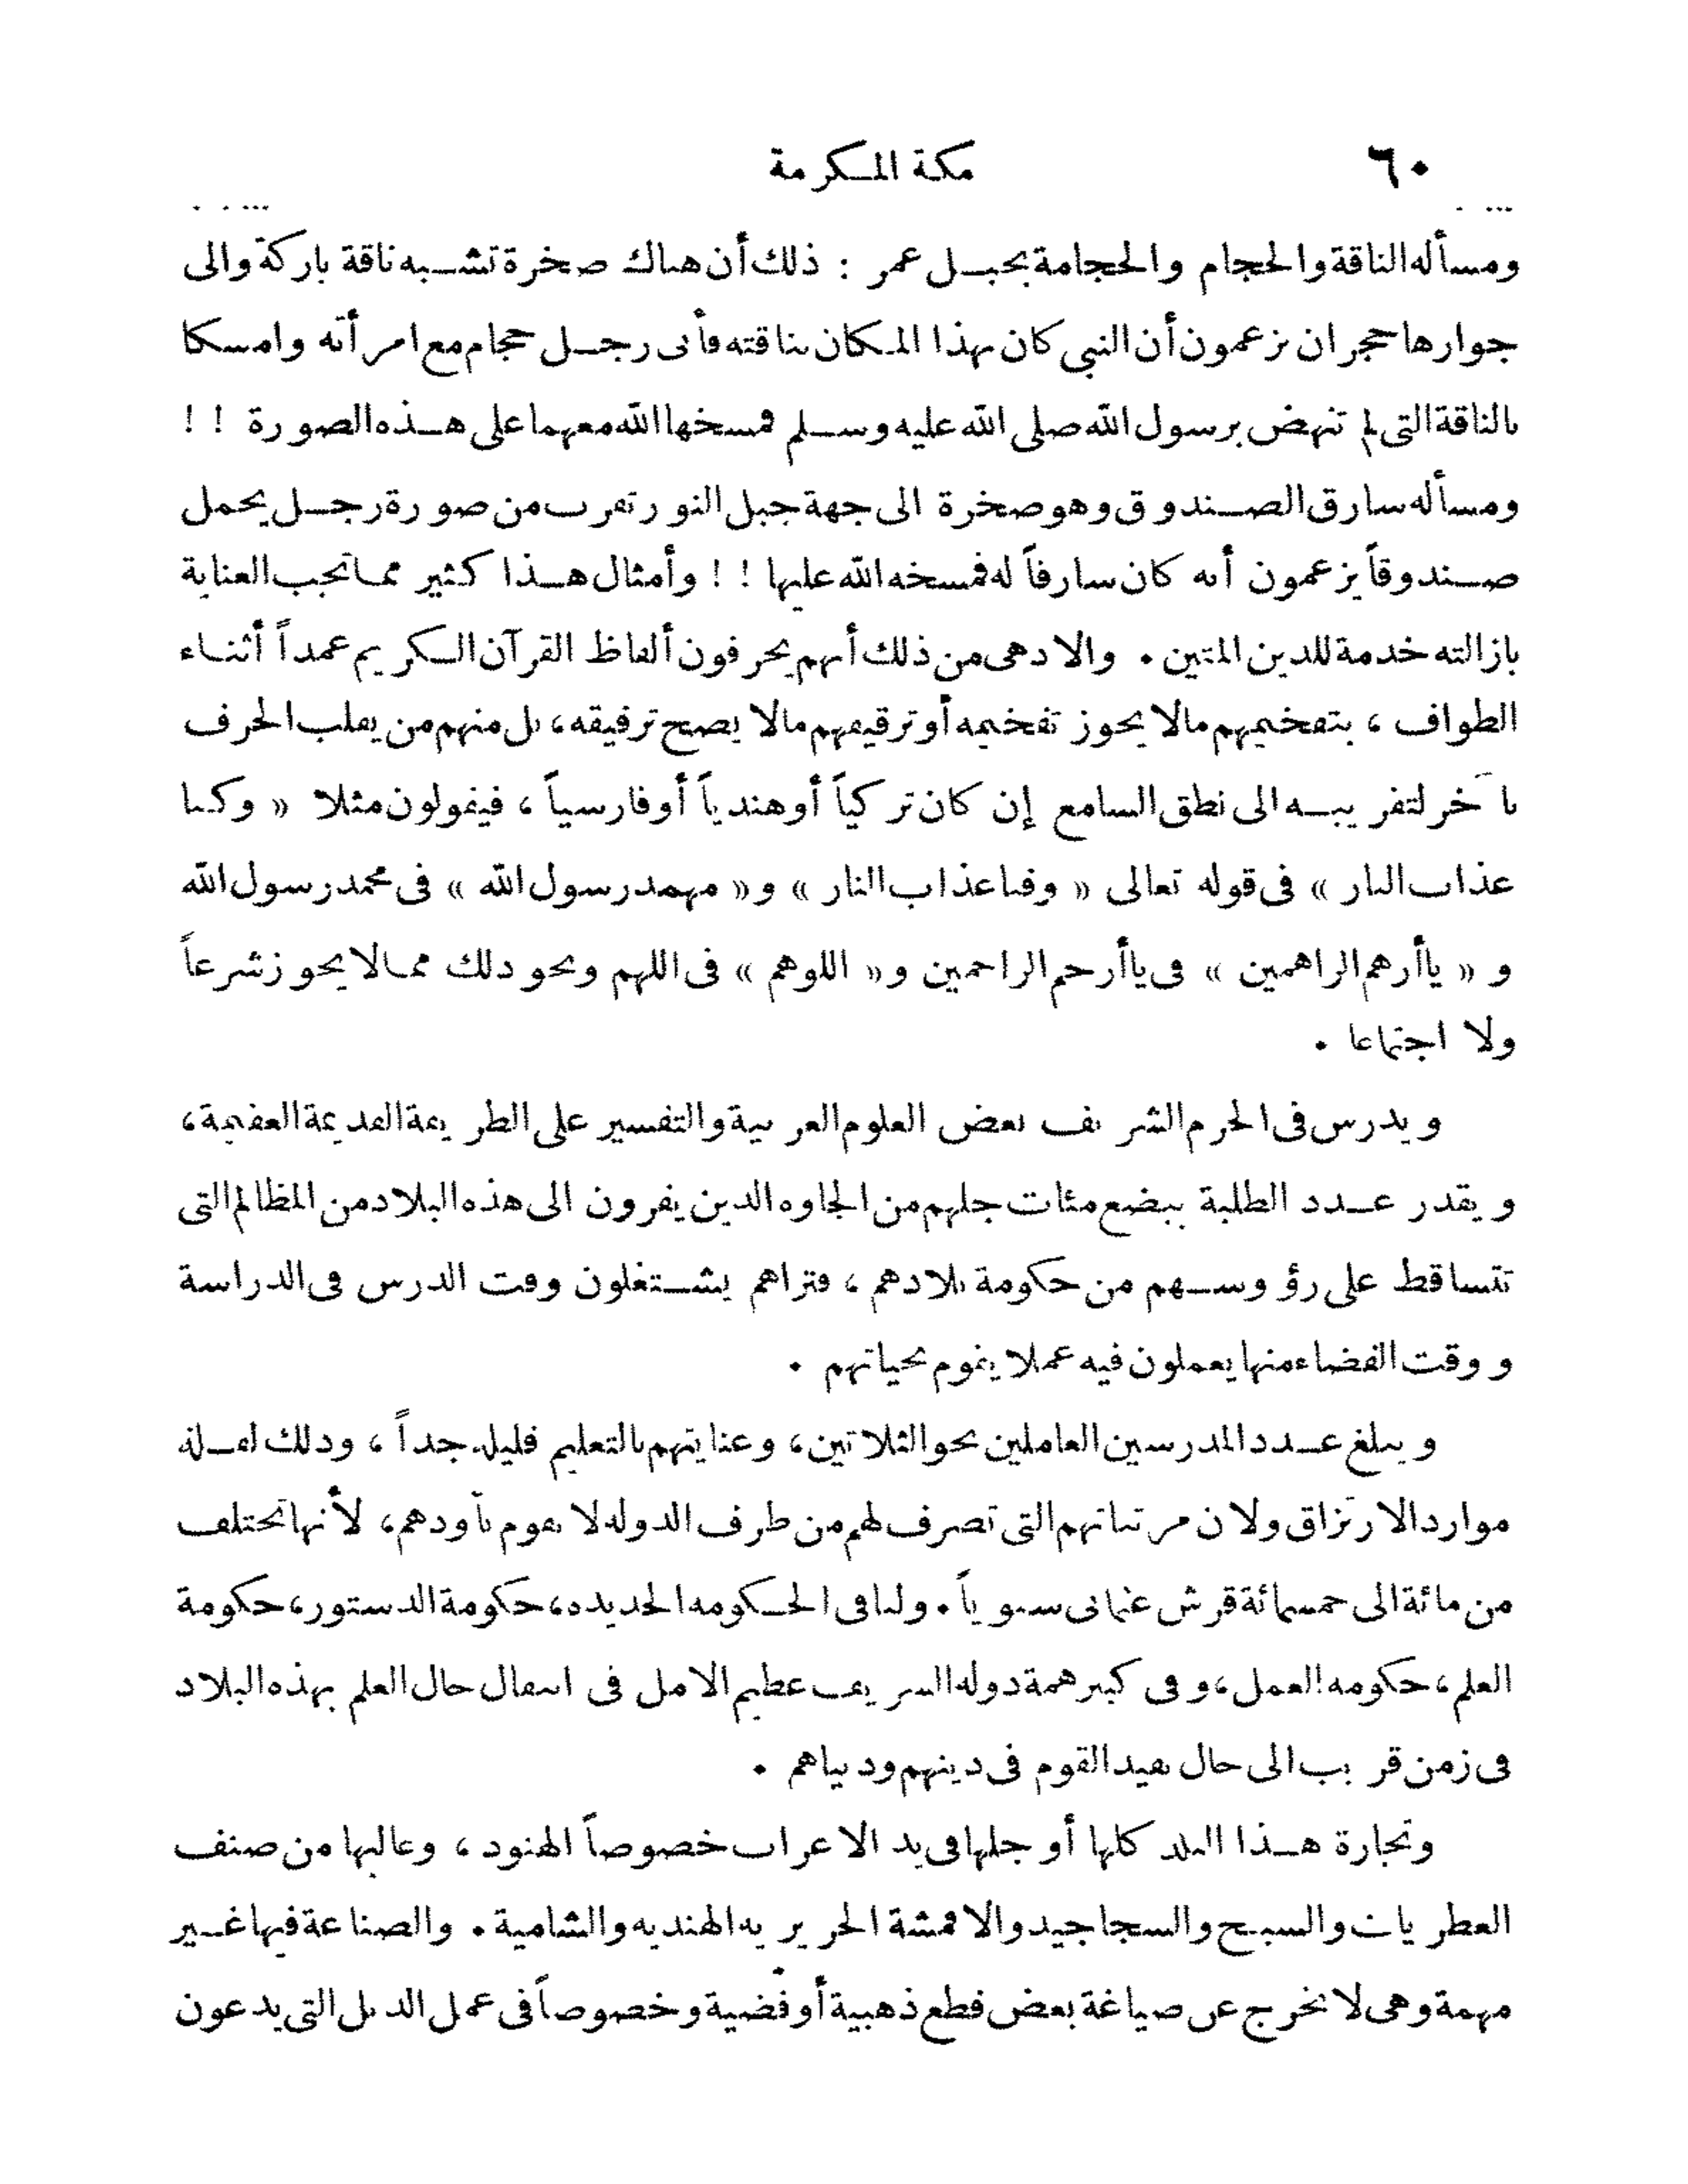 ٦٠ مكة المكرمة
ومسألة الناقة والحجام والحجامة بجبل عمر : ذلك أن هناك صخرة تشبه ناقة باركة والى
جوارها حجران يزعمون أن النبي كان بهذا المكان بناقته فأتى رجل حجام مع امرأته وامسكا
بالناقة التي لم تنهض برسول الله صلى الله عليه وسلم فمسخها الله معهما على هذه الصورة ! !
ومسألة سارق الصندوق وهو صخرة الى جهة جبل النور تقرب من صورة رجل يحمل
صندوقاً يزعمون أنه كان سارقاً له فمسخه الله عليها ! ! وأمثال هذا كثير مما تجب العناية
بازالته خدمة للدين المتين . والادهى من ذلك أنهم يحرفون ألفاظ القرآن الكريم عمداً أثناء
الطواف ، بتفخيمهم مالا يجوز تفخيمه أو ترقيقهم مالا يصح ترقيقه ، بل منهم من يقلب الحرف
بآخر لتقريبه الى نطق السامع إن كان تركياً أو هندياً أو فارسياً ، فيقولون مثلا « وكنا
عذاب النار » فى قوله تعالى « وقنا عذاب النار » و « مهمد رسول الله » فى محمد رسول الله
و « ياأرهم الراهمين » فى ياأرحم الراحمين و « اللوهم » فى اللهم ونحو ذلك مما لا يجوز شرعاً
ولا اجتماعا .
ويدرس فى الحرم الشريف بعض العلوم العربية والتفسير على الطريقة القديمة العقيمة ،
ويقدر عدد الطلبة ببضع مئات جلهم من الجاوه الذين يفرون الى هذه البلاد من المظالم التى
تتساقط على رؤوسهم من حكومة بلادهم ، فتراهم يشتغلون وقت الدرس فى الدراسة
ووقت الفضاء منها يعملون فيه عملا يقوم بحياتهم .
ويبلغ عدد المدرسين العاملين نحو الثلاثين ، وعنايتهم بالتعليم قليلة جداً ، وذلك لقلة
موارد الارتزاق ولان مرتباتهم التى تصرف لهم من طرف الدولة لا تقوم بأودهم ، لأنها تختلف
من مائة الى خمسمائة قرش عثمانى سنوياً . ولنا فى الحكومة الجديدة ، حكومة الدستور ، حكومة
العلم ، حكومة العمل ، وفى كبير همة دولة الشريف عظيم الامل فى انتقال حال العلم بهذه البلاد
فى زمن قريب الى حال يفيد القوم فى دينهم ودنياهم .
وتجارة هذا البلد كلها أو جلها فى يد الاغراب خصوصاً الهنود ، وغالبها من صنف
العطريات والسبح والسجاجيد والاقمشة الحريرية الهندية والشامية . والصناعة فيها غير
مهمة وهى لا تخرج عن صياغة بعض قطع ذهبية أو فضية وخصوصاً فى عمل الدبل التى يدعون